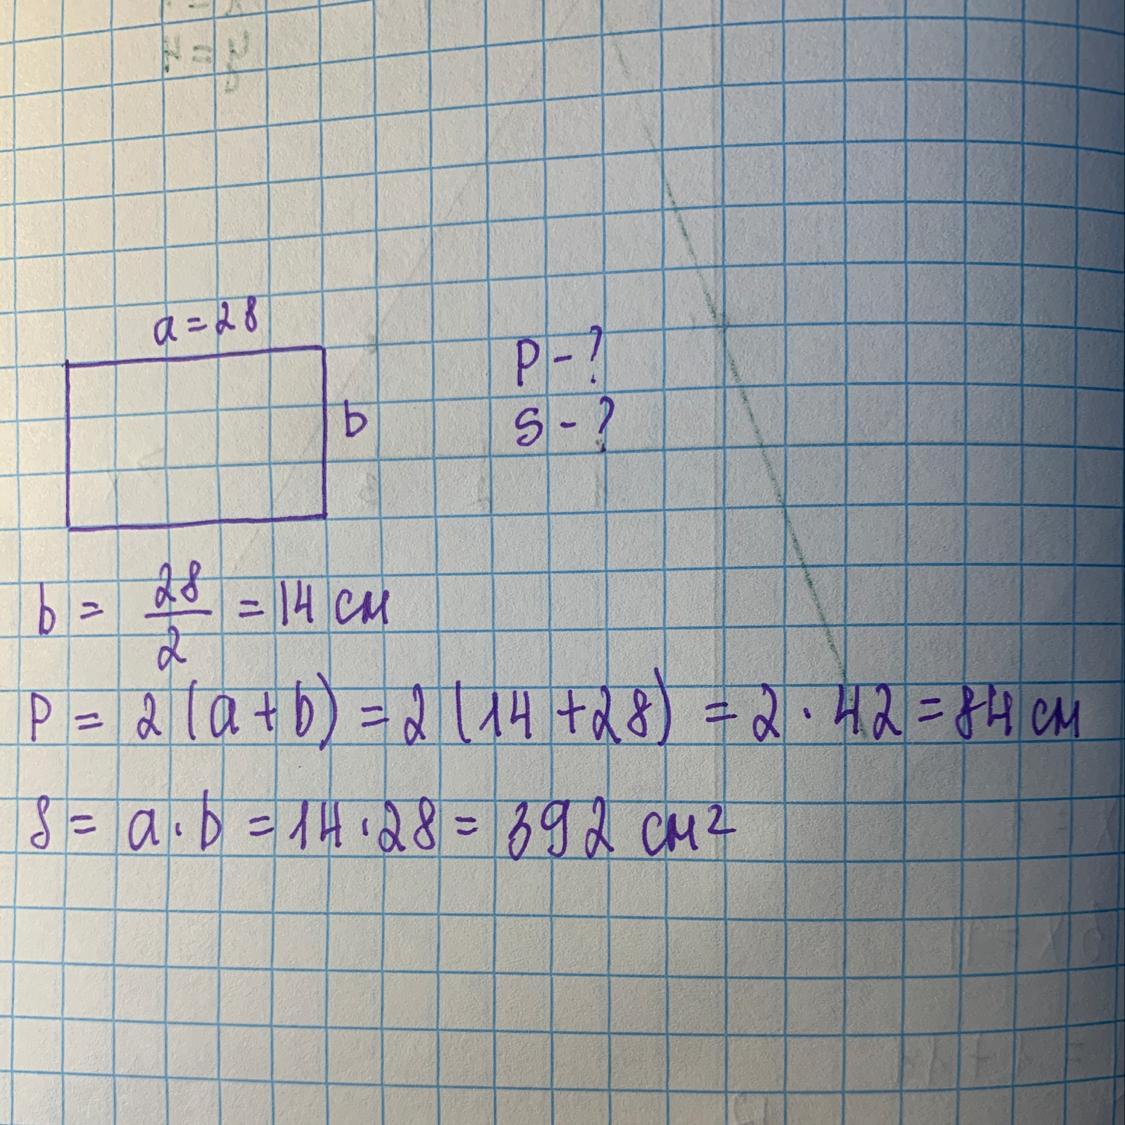 a = 28
b
P - ?
S - ?
b = 28/2 = 14 см
P = 2 (a + b) = 2 (14 + 28) = 2 · 42 = 84 см
S = a · b = 14 · 28 = 392 см²